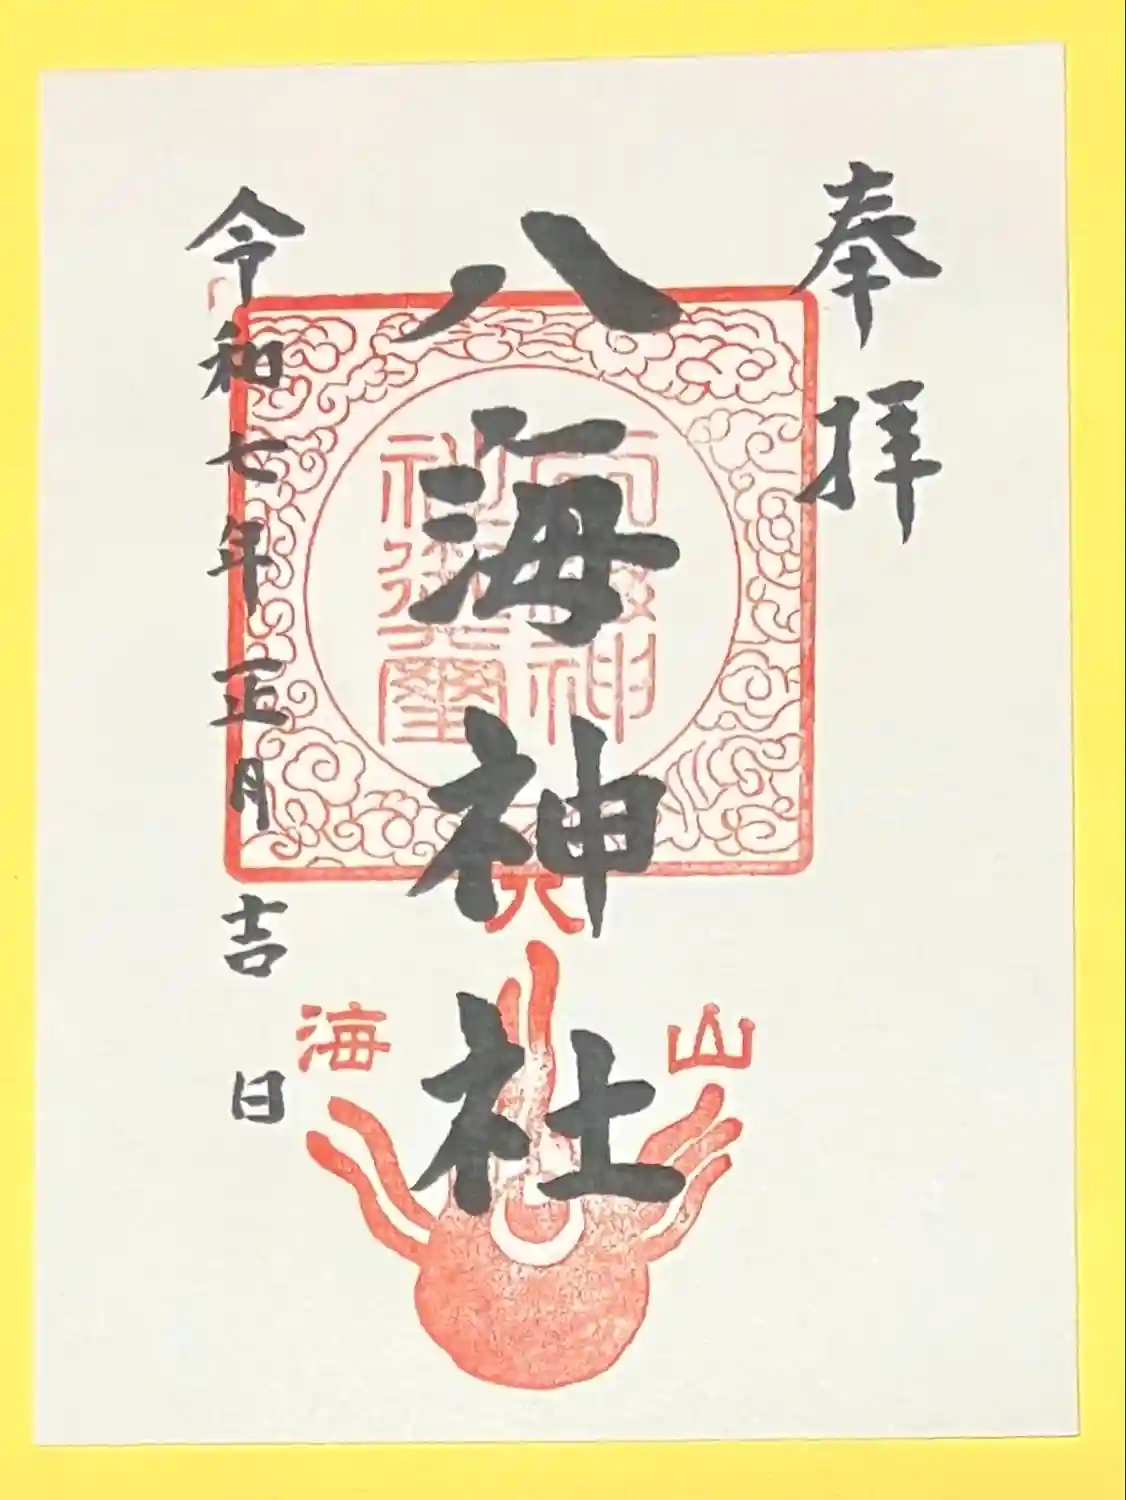 奉拝
八海神社
令和七年正月吉日
八
山
海